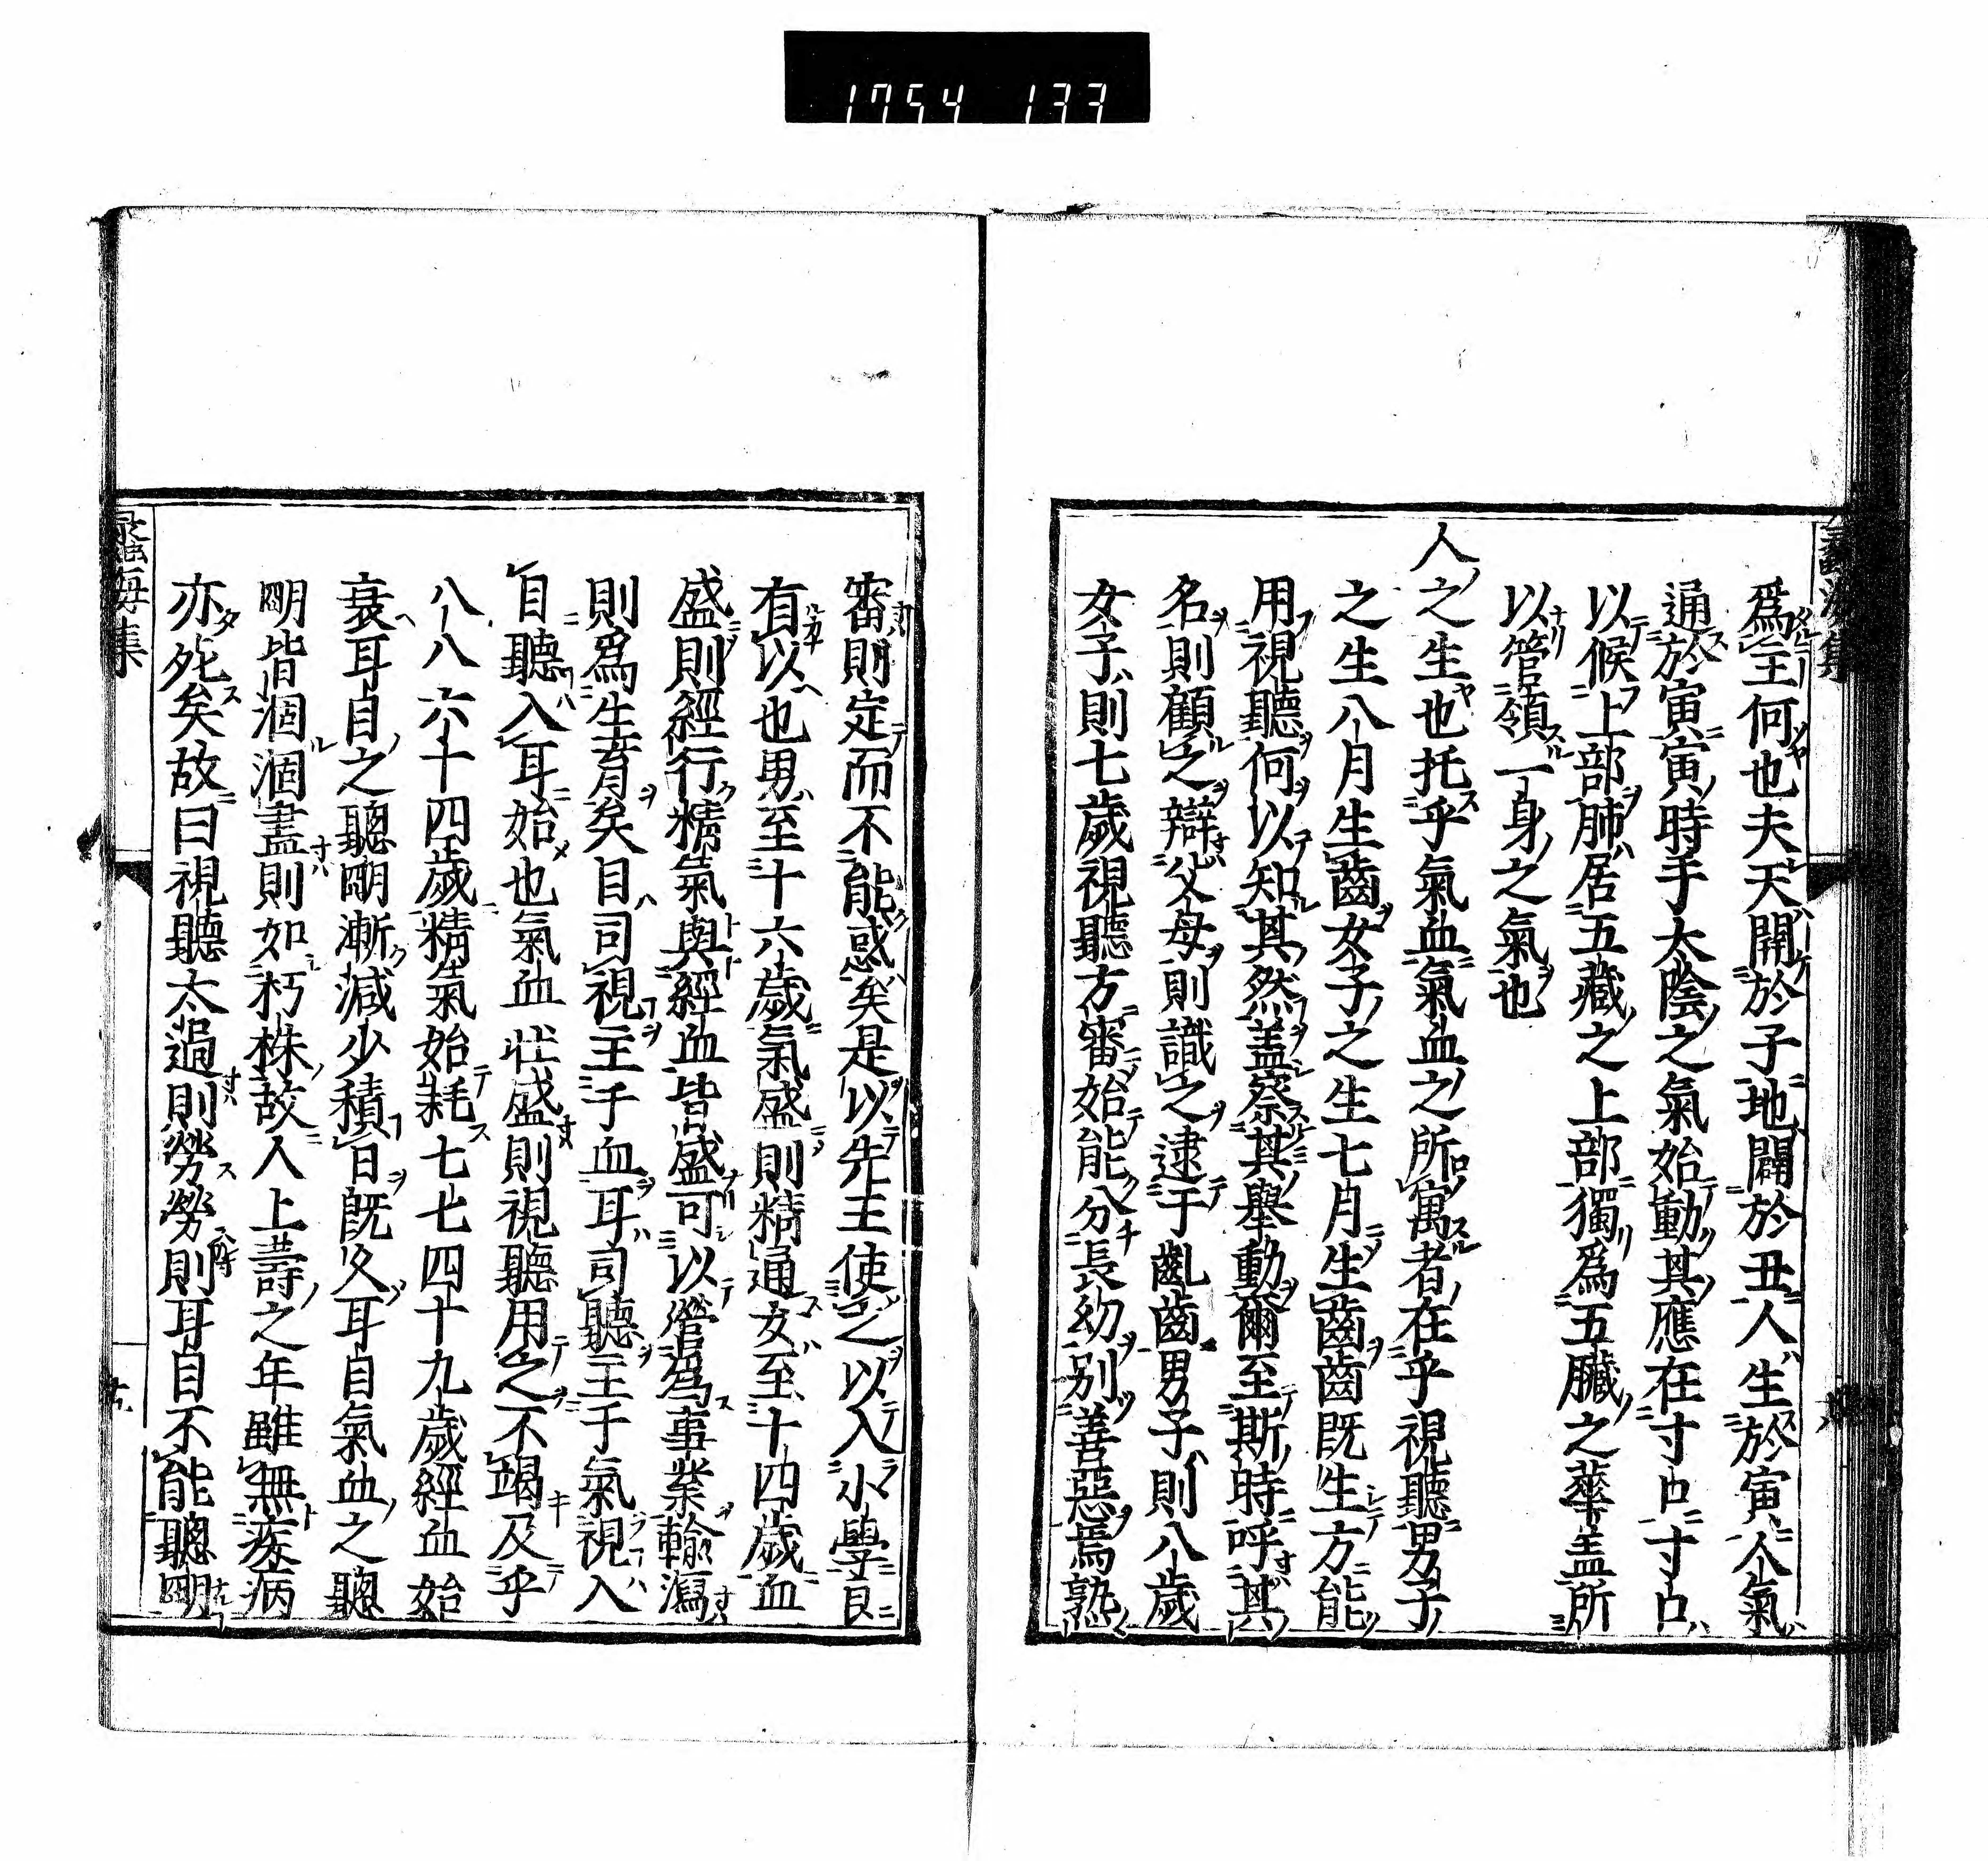 1754 133
爲主何也夫天開於子地闢於丑人生於寅人氣
通於寅寅時手太陰之氣始動其應在寸口寸口
以候上部肺居五藏之上部獨爲五臟之華盖所
以管領一身之氣也
人之生也托乎氣血氣血之所寓者在乎視聽男子
之生八月生齒女子之生七月生齒齒既生方能
用視聽何以知其然盖察其舉動爾至斯時呼其
名則顧之辯父母則識之逮于齓齒男子則八歲
女子則七歲視聽方審始能分長幼別善惡焉熟
審則定而不能惑矣是以先王使之以入小學良
有以也男至十六歲氣盛則精通女至十四歲血
盛則經行精氣與經血皆盛可以營爲事業輸瀉
則爲生育矣目司視主于血耳司聽主于氣視入
目聽入耳始也氣血壯盛則視聽用之不竭及乎
八八六十四歲精氣始耗七七四十九歲經血始
衰耳目之聰明漸減少積日既久耳目氣血之聰
明皆涸涸盡則如朽株故人上壽之年雖無疾病
亦死矣故曰視聽太過則勞勞則耳目不能聰明
蠡海集